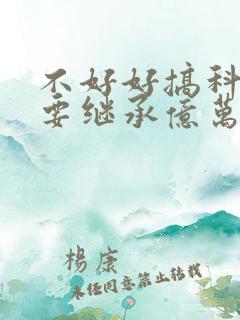 不好好搞科
要继承億萬
楊康
未经同意禁止转载